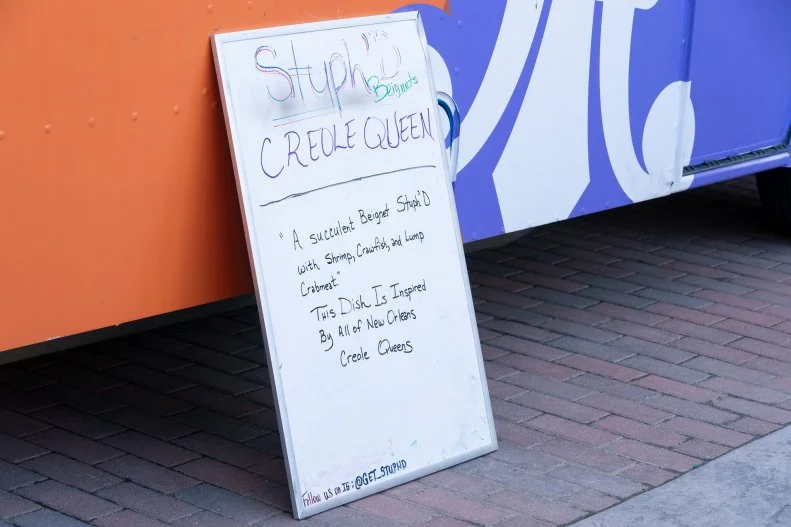 Stuph'D
Beignets
CREOLE QUEEN
"A succulent Beignet Stuph'D
with Shrimp, Crawfish, and Lump
Crabmeat"
This Dish Is Inspired
By All of New Orleans
Creole Queens
Follow us on IG: @GET_STUPHD